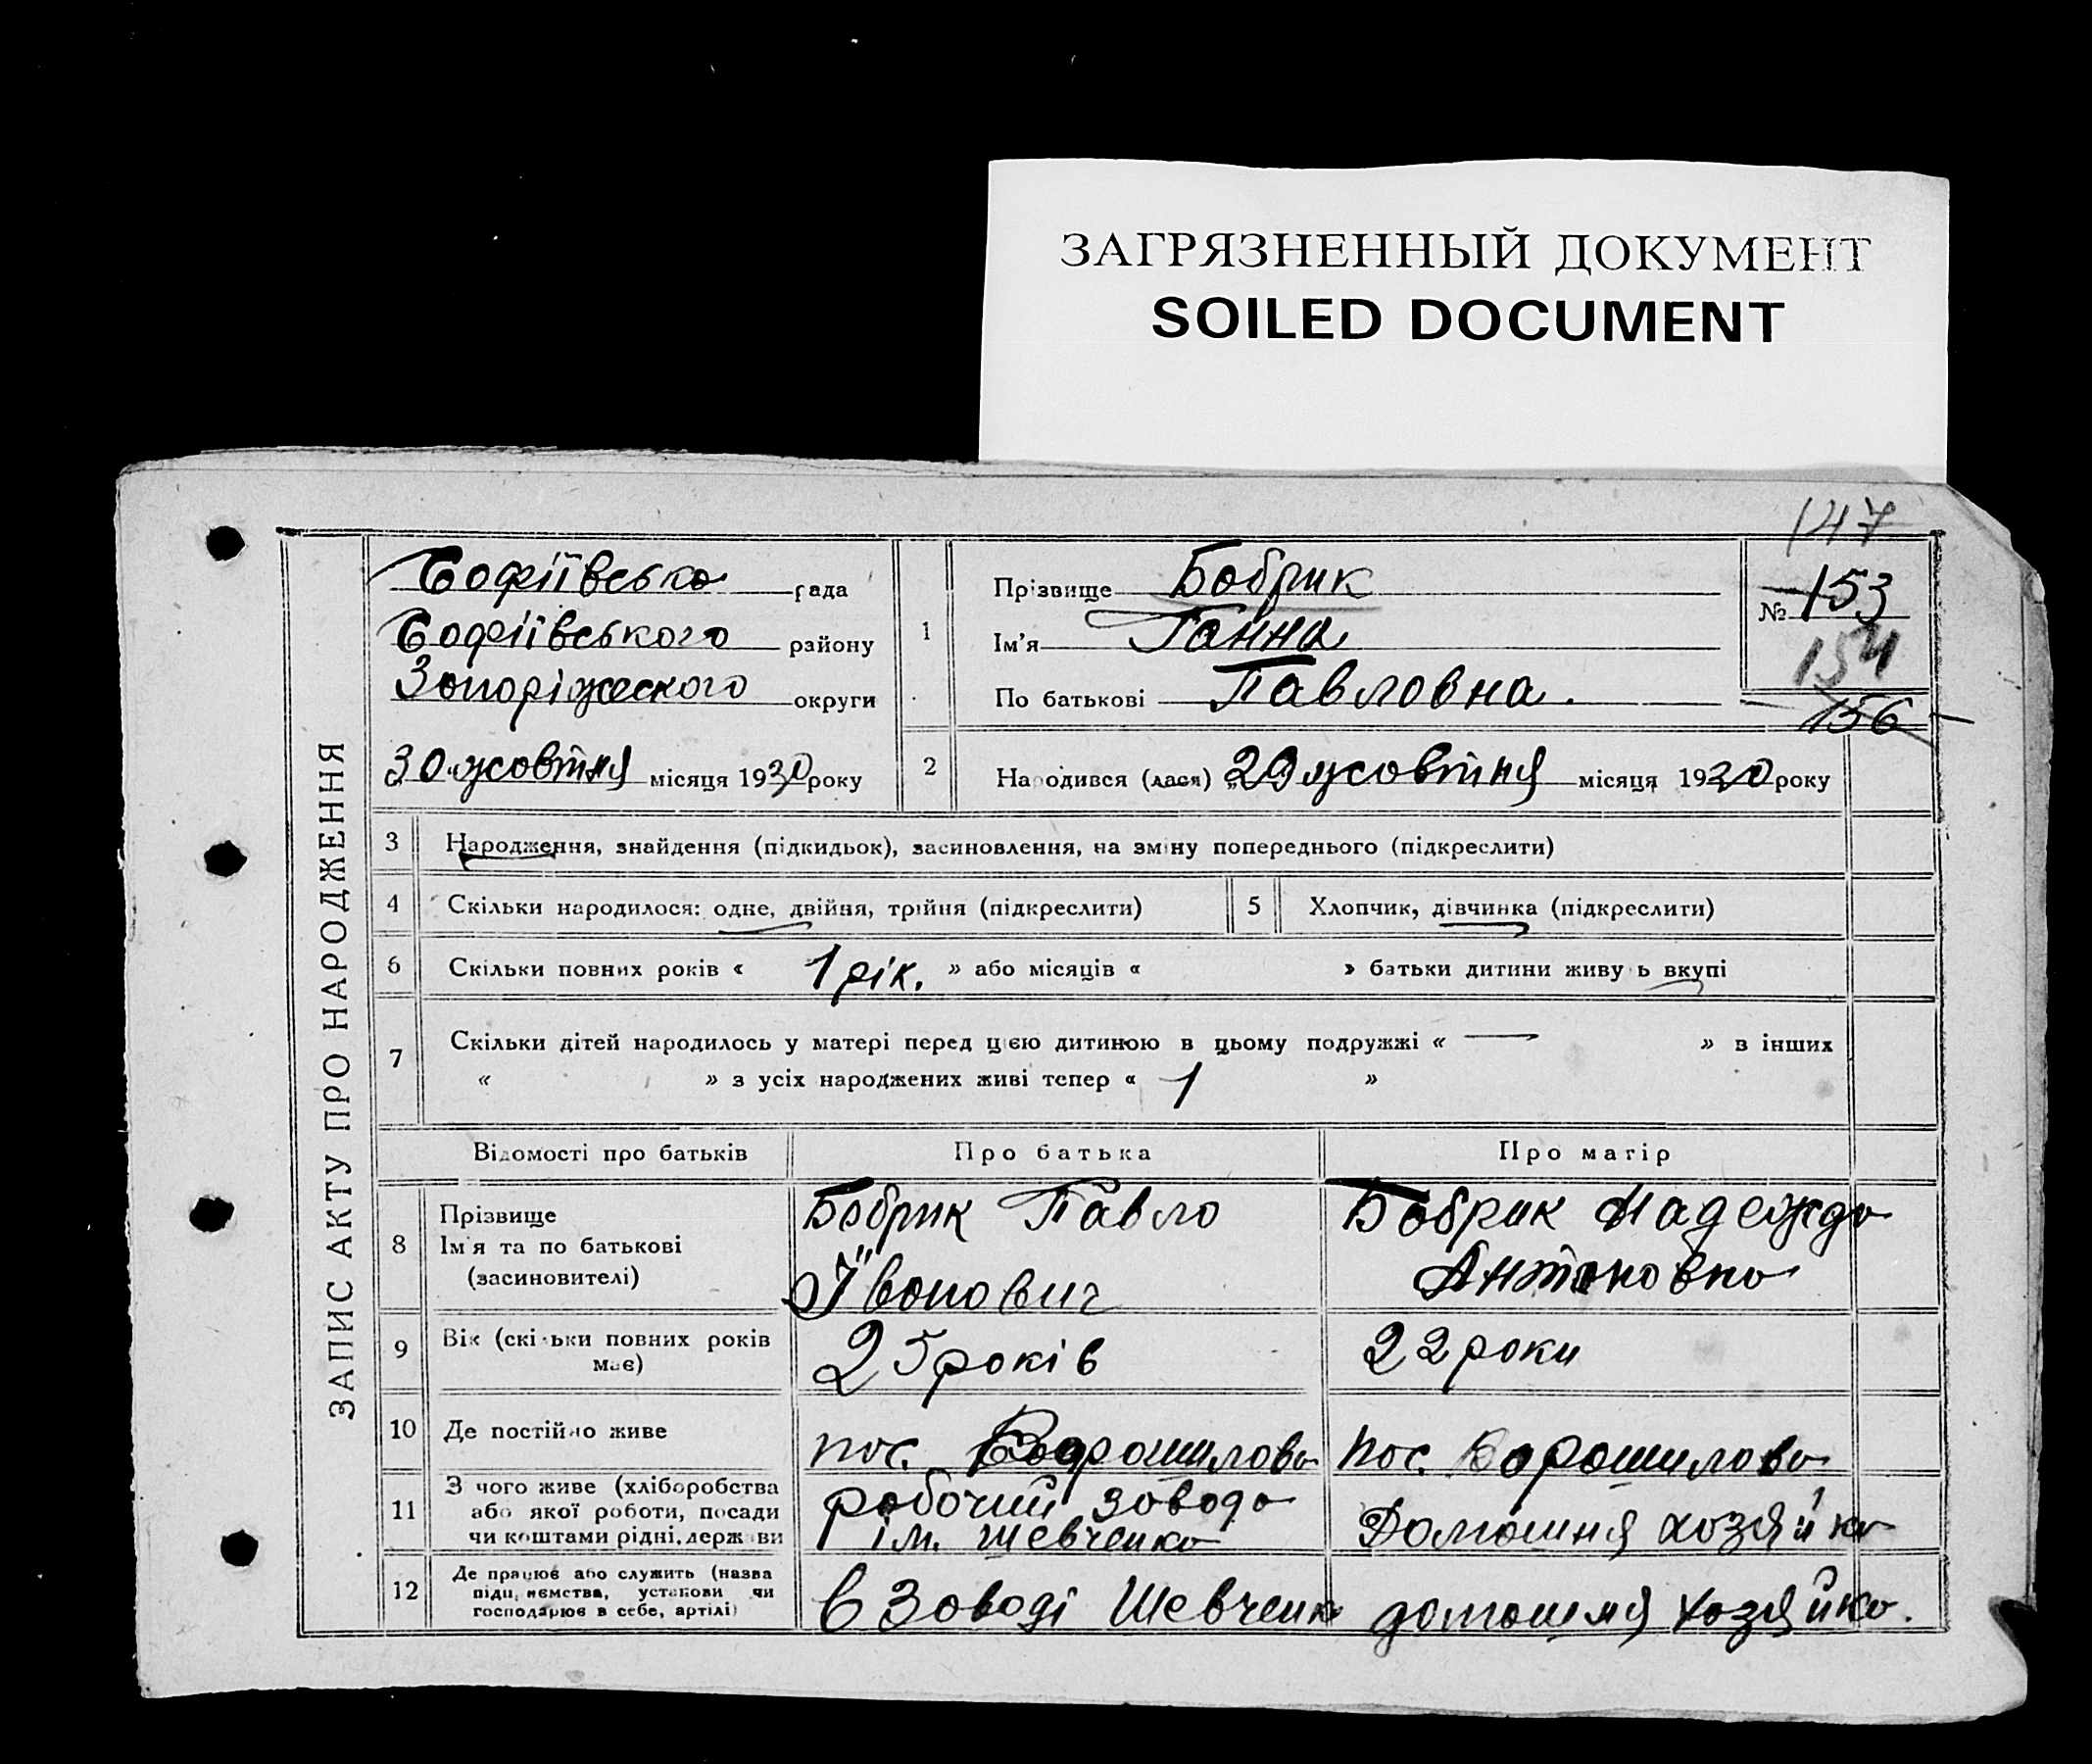 ЗАГРЯЗНЕННЫЙ ДОКУМЕНТ
SOILED DOCUMENT
147
ЗАПИС АКТУ ПРО НАРОДЖЕННЯ
Софіївська рада
Софіївського району
Запоріжского округи
30 жовтня місяця 1930 року
1
Прізвище Бобрик
Ім'я Ганна
По батькові Павловна.
№ 153
154
156
2 Народився (лася) 29 жовтня місяця 1930 року
3 Народження, знайдення (підкидьок), засиновлення, на зміну попереднього (підкреслити)
4 Скільки народилося: одне, двійня, трійня (підкреслити) 5 Хлопчик, дівчинка (підкреслити)
6 Скільки повних років « 1 рік. » або місяців « » батьки дитини живуть вкупі
7 Скільки дітей народилось у матері перед цією дитиною в цьому подружжі « — » в інших
« » з усіх народжених живі тепер « 1 »
Відомості про батьків Про батька Про матір
8 Прізвище
Ім'я та по батькові
(засиновителі)
Бобрик Павло
Івонович
Бобрик Надежда
Антоновна
9 Вік (скільки повних років
має)
25 років
22 роки
10 Де постійно живе
пос. Ворошилова
пос. Ворошилова
11 З чого живе (хліборобства
або якої роботи, посади
чи коштами рідні, держави
робочий завода
ім. Шевченка
Домашня хозяйка
12 Де працює або служить (назва
підприємства, установи чи
господарює в себе, артілі)
в Заводі Шевченк
домашня хозяйка.